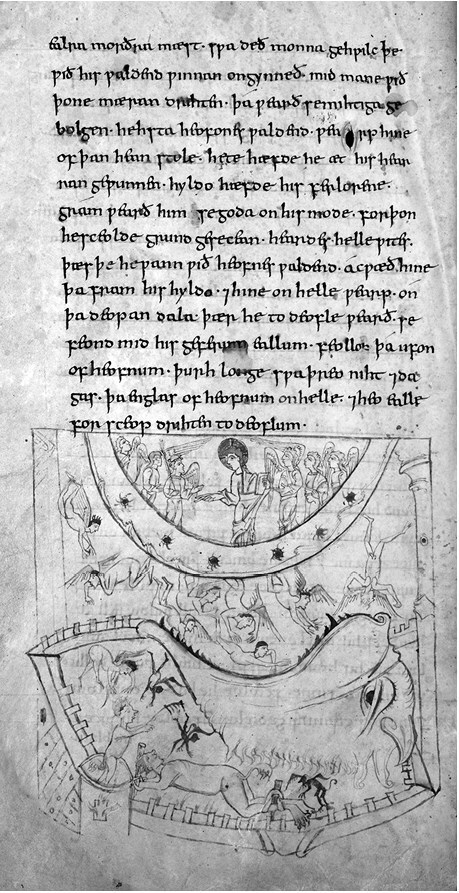 ealra morðra mæst· sƿa deð monna gehƿilc þe·
ƿið his ƿaldend ƿinnan ongynneð· mid mane ƿið
þone mæran drihten· þa ƿearð se mihtiga ge
bolgen· hehsta heofones ƿaldend· ƿearp hine
of þan hean stole· hete hæfde he æt his hear
ran geƿunnen· hyldo hæfde his ferlorene·
gram ƿearð him se goda on his mode· forþon
he sceolde grund gesecean· heardes helle ƿites·
þæs þe he ƿann ƿið heofnes ƿaldend· acƿæð hine
þa fram his hyldo· ⁊ hine on helle ƿearp· on
þa deopan dala· þær he to deofle ƿearð· se
feond mid his geferum eallum· feollon þa ufon
of heofnum· þurh longe sƿa þreo niht ⁊ da
gas· þa englas of heofnum on helle· ⁊ heo ealle
for sceop drihten to deoflum·